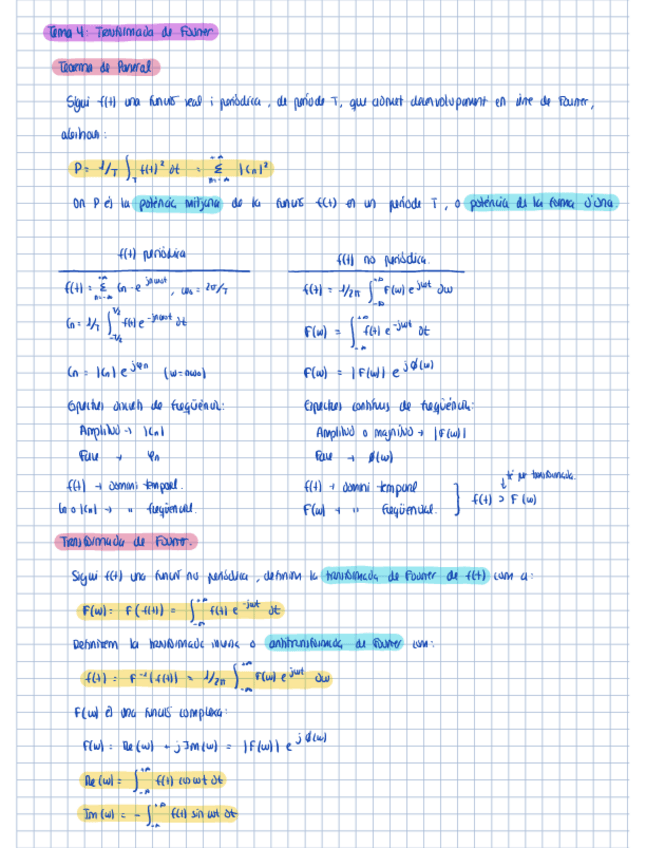 Tema 4: Transformada de Fourier
Teorema de Parseval
Sigui f(t) una funció real i periòdica, de període T, que admet desenvolupament en sèrie de Fourier,
aleshores:
P = 1/T ∫_T f(t)² dt = Σ_{n=-∞}^{+∞} |Cn|²
On P és la potència mitjana de la funció f(t) en un període T, o potència de la forma d'ona
f(t) periòdica
f(t) = Σ_{n=-∞}^{+∞} Cn · e^{jnω₀t}, ω₀ = 2π/T
Cn = 1/T ∫_{-T/2}^{T/2} f(t) e^{-jnω₀t} dt
Cn = |Cn| e^{jφn} (ω=nω₀)
Espectres discrets de freqüència:
Amplitud → |Cn|
Fase → φn
f(t) → domini temporal.
Cn o |Cn| → " freqüencial.
f(t) no periòdica.
f(t) = 1/2π ∫_{-∞}^{+∞} F(ω) e^{jωt} dω
F(ω) = ∫_{-∞}^{+∞} f(t) e^{-jωt} dt
F(ω) = |F(ω)| e^{jϕ(ω)}
Espectres continus de freqüència:
Amplitud o magnitud → |F(ω)|
Fase → ϕ(ω)
f(t) → domini temporal
F(ω) → " freqüencial.
té per transformada.
f(t) ⊃ F(ω)
Transformada de Fourier.
Sigui f(t) una funció no periòdica, definim la transformada de Fourier de f(t) com a:
F(ω) = F(f(t)) = ∫_{-∞}^{+∞} f(t) e^{-jωt} dt
Definirem la transformada inversa o antitransformada de Fourier com:
f(t) = F⁻¹(f(t)) = 1/2π ∫_{-∞}^{+∞} F(ω) e^{jωt} dω
F(ω) és una funció complexa:
F(ω) = Re(ω) + jIm(ω) = |F(ω)| e^{jϕ(ω)}
Re(ω) = ∫_{-∞}^{+∞} f(t) cos ωt dt
Im(ω) = - ∫_{-∞}^{+∞} f(t) sin ωt dt